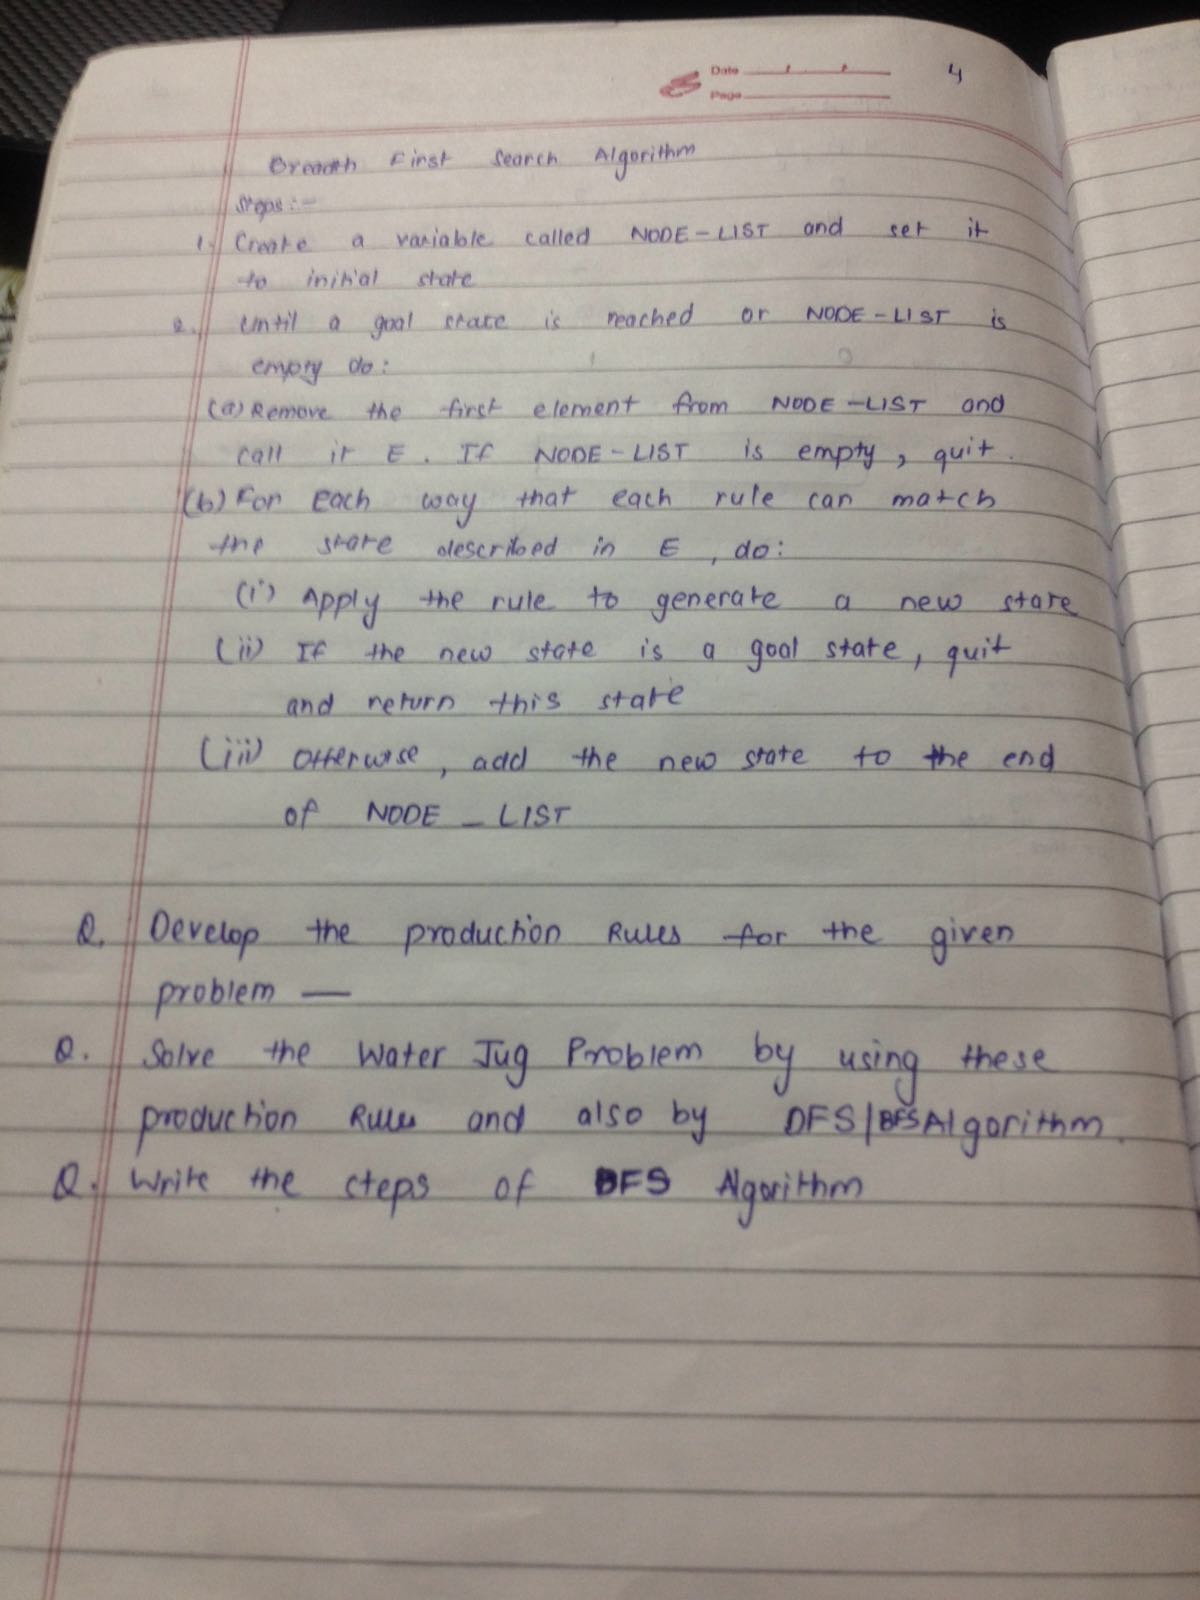 Date
4
Page
Breadth First Search Algorithm
Steps :-
1. Create a variable called NODE-LIST and set it
to initial state
2. Until a goal state is reached or NODE-LIST is
empty do:
(a) Remove the first element from NODE-LIST and
call it E. If NODE-LIST is empty, quit.
(b) For Each way that each rule can match
the state described in E, do:
(i) Apply the rule to generate a new state
(ii) If the new state is a goal state, quit
and return this state
(iii) Otherwise, add the new state to the end
of NODE_LIST
Q. Develop the production Rules for the given
problem —
Q. Solve the Water Jug Problem by using these
production Rules and also by DFS/BFS Algorithm.
Q. Write the steps of Algorithm